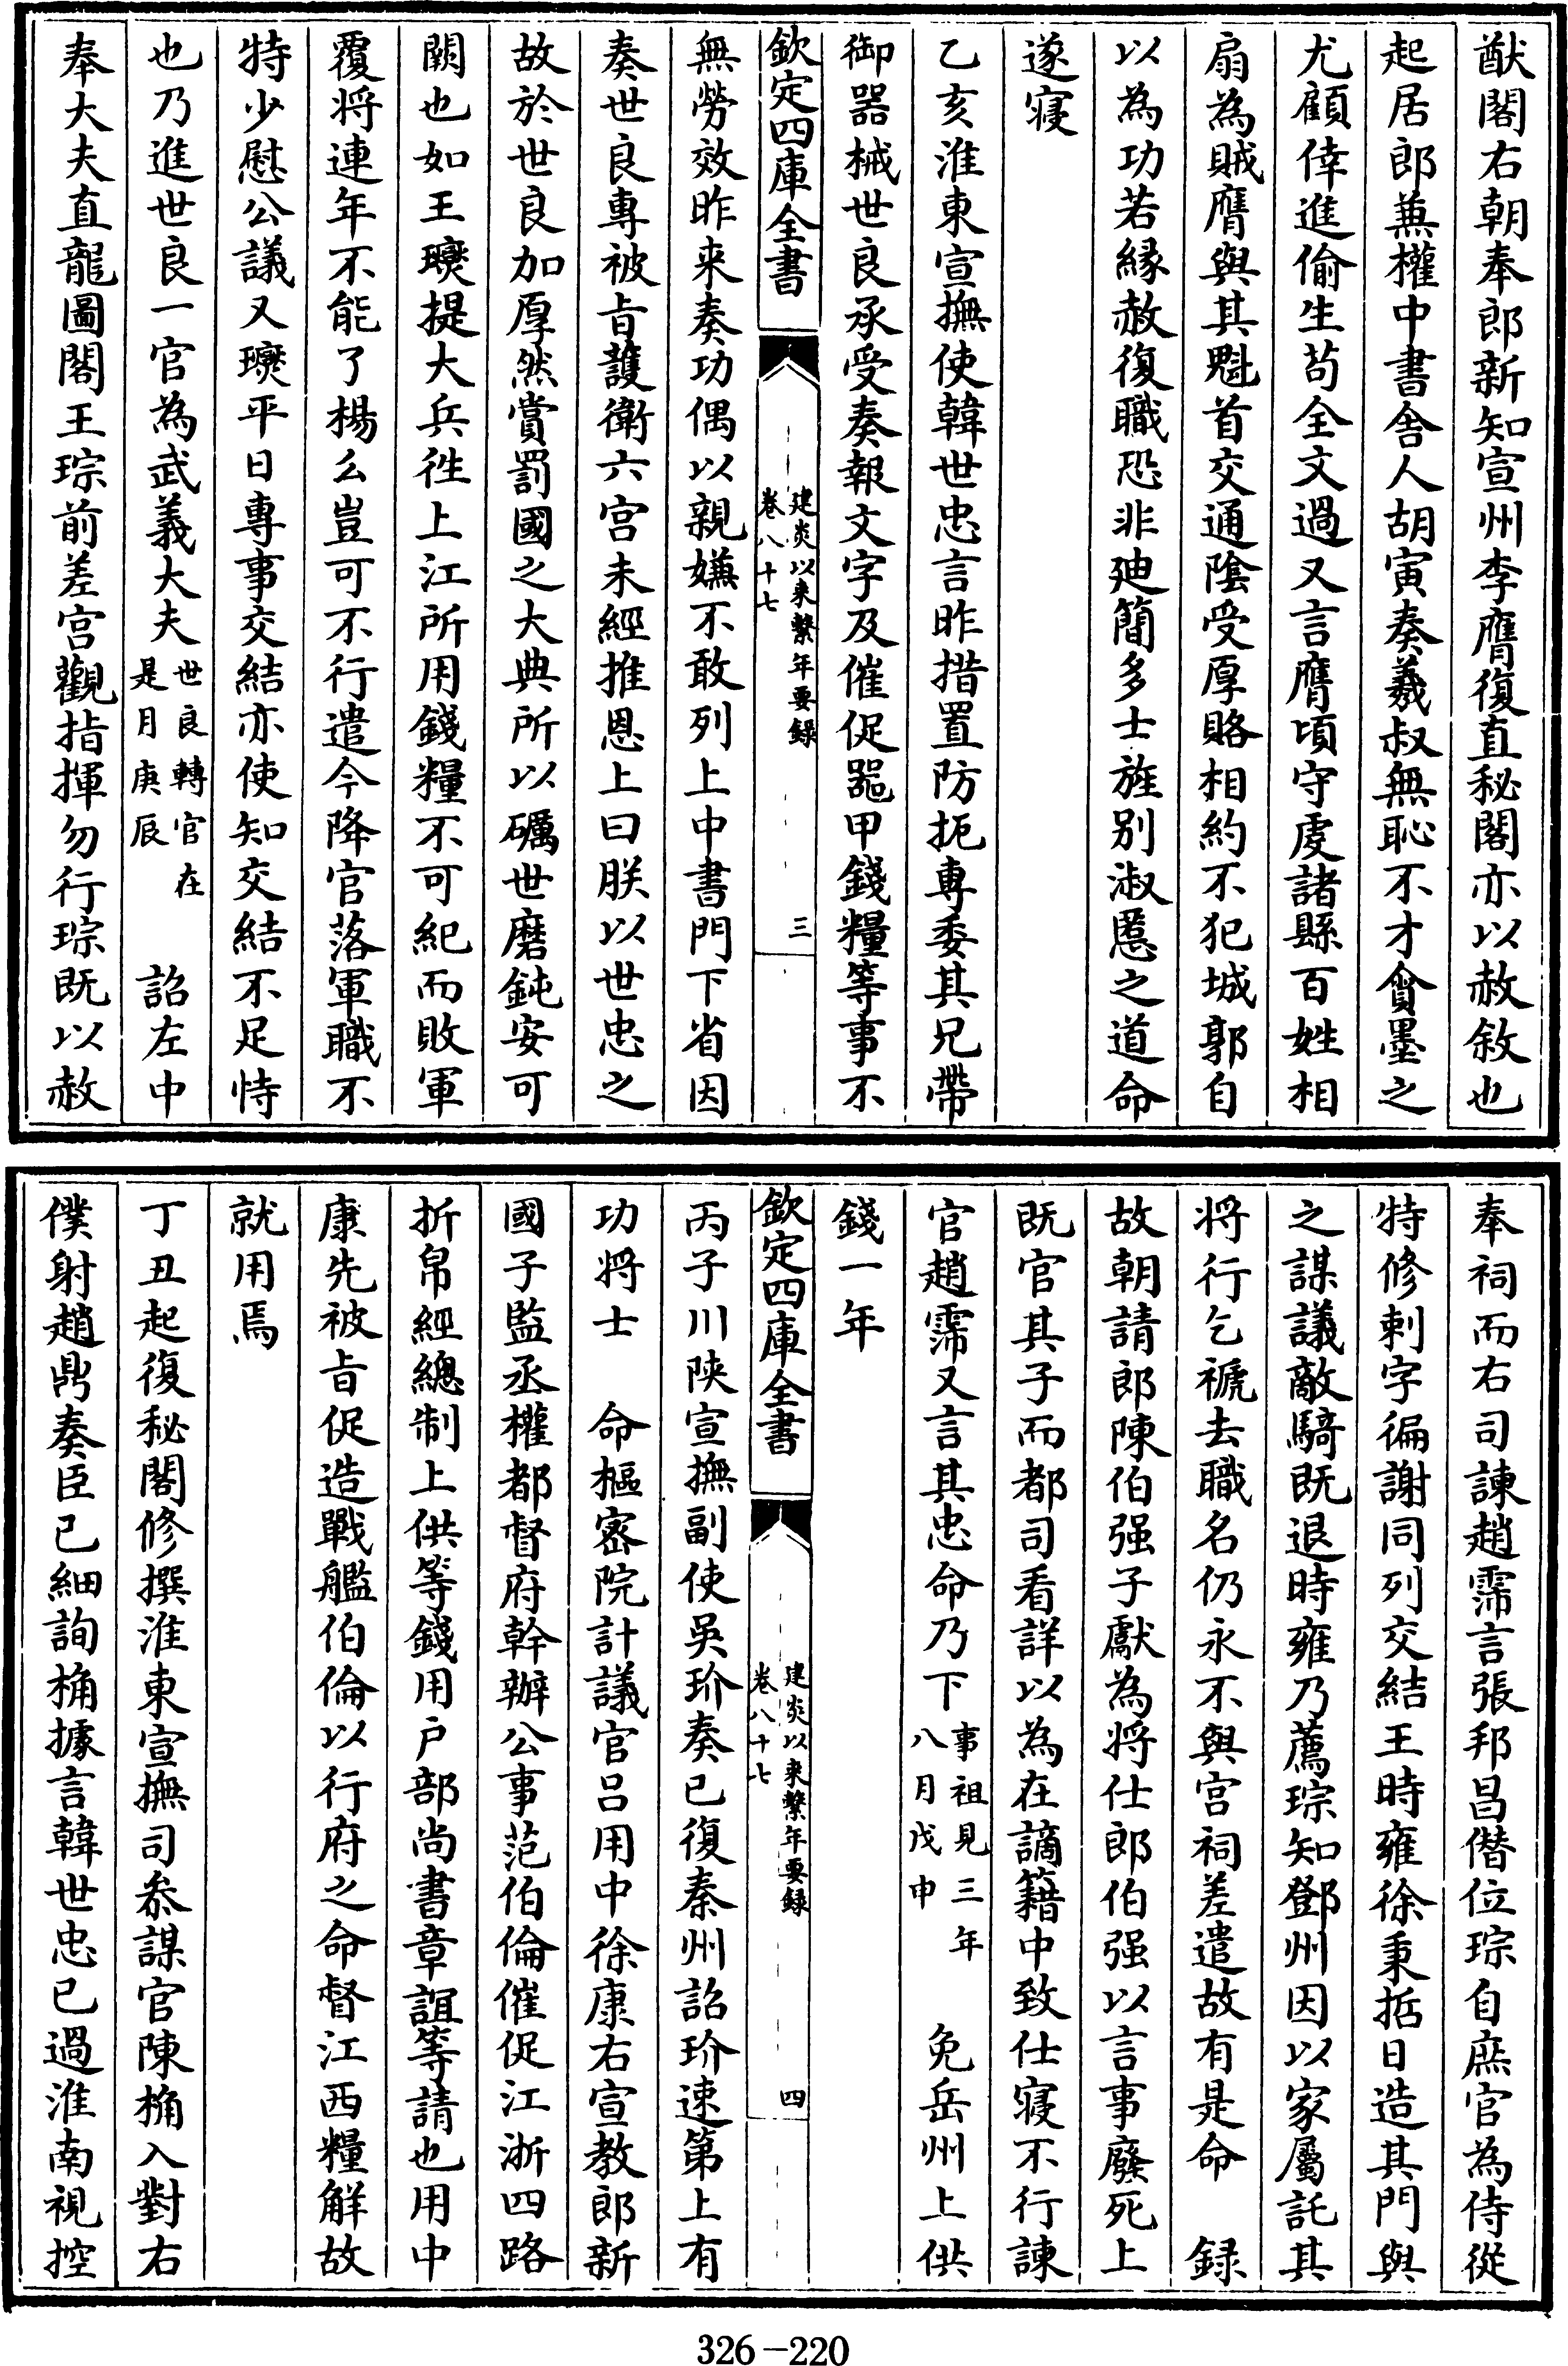 猷閣右朝奉郎新知宣州李膺復直秘閣亦以赦敘也
起居郎兼權中書舍人胡寅奏羲叔無恥不才貪墨之
尤顧倖進偷生苟全文過又言膺頃守處諸縣百姓相
扇為賊膺與其魁首交通陰受厚賂相約不犯城郭自
以為功若縁赦復職恐非廸簡多士旌别淑慝之道命
遂寝
乙亥淮東宣撫使韓世忠言昨措置防扼専委其兄帶
御器械世良承受奏報文字及催促噐甲錢糧等事不
欽定四庫全書
建炎以來繫年要録
卷八十七
三
無勞效昨来奏功偶以親嫌不敢列上中書門下省因
奏世良專被㫖護衛六宫未經推恩上曰朕以世忠之
故於世良加厚然賞罰國之大典所以礪世磨鈍安可
闕也如王𤫉提大兵徃上江所用錢糧不可紀而敗軍
覆将連年不能了楊么豈可不行遣今降官落軍職不
特少慰公議又𤫉平日專事交結亦使知交結不足恃
也乃進世良一官為武義大夫世良轉官在是月庚辰　詔左中
奉大夫直龍圖閣王琮前差宫觀指揮勿行琮既以赦
奉祠而右司諫趙霈言張邦昌僭位琮自庶官為侍從
特修刺字徧謝同列交結王時雍徐秉哲日造其門與
之謀議敵騎既退時雍乃薦琮知鄧州因以家屬託其
将行乞褫去職名仍永不與宫祠差遣故有是命　録
故朝請郎陳伯强子獻為将仕郎伯强以言事廢死上
既官其子而都司看詳以為在謫籍中致仕寝不行諫
官趙霈又言其忠命乃下事祖見三年八月戊申　免岳州上供
錢一年
欽定四庫全書
建炎以來繫年要録
卷八十七
四
丙子川陜宣撫副使吳玠奏已復秦州詔玠速第上有
功将士　命樞宻院計議官吕用中徐康右宣教郎新
國子監丞權都督府幹辦公事范伯倫催促江浙四路
折帛經總制上供等錢用户部尚書章誼等請也用中
康先被㫖促造戰艦伯倫以行府之命督江西糧解故
就用焉
丁丑起復秘閣修撰淮東宣撫司叅謀官陳桷入對右
僕射趙鼎奏臣已細詢桷據言韓世忠已過淮南視控